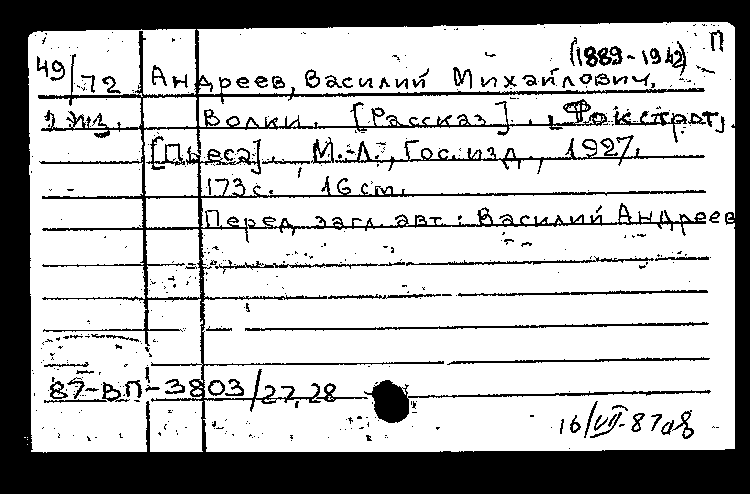 (1889-1942) П
49/72 Андреев, Василий Михайлович.
2 экз. Волки. [Рассказ]. Фокстрот.
[Пьеса]. М.-Л., Гос. изд., 1927.
173 с. 16 cm.
Перед загл. авт.: Василий Андреев
87-ВП-3803/27,28
16/VII-87